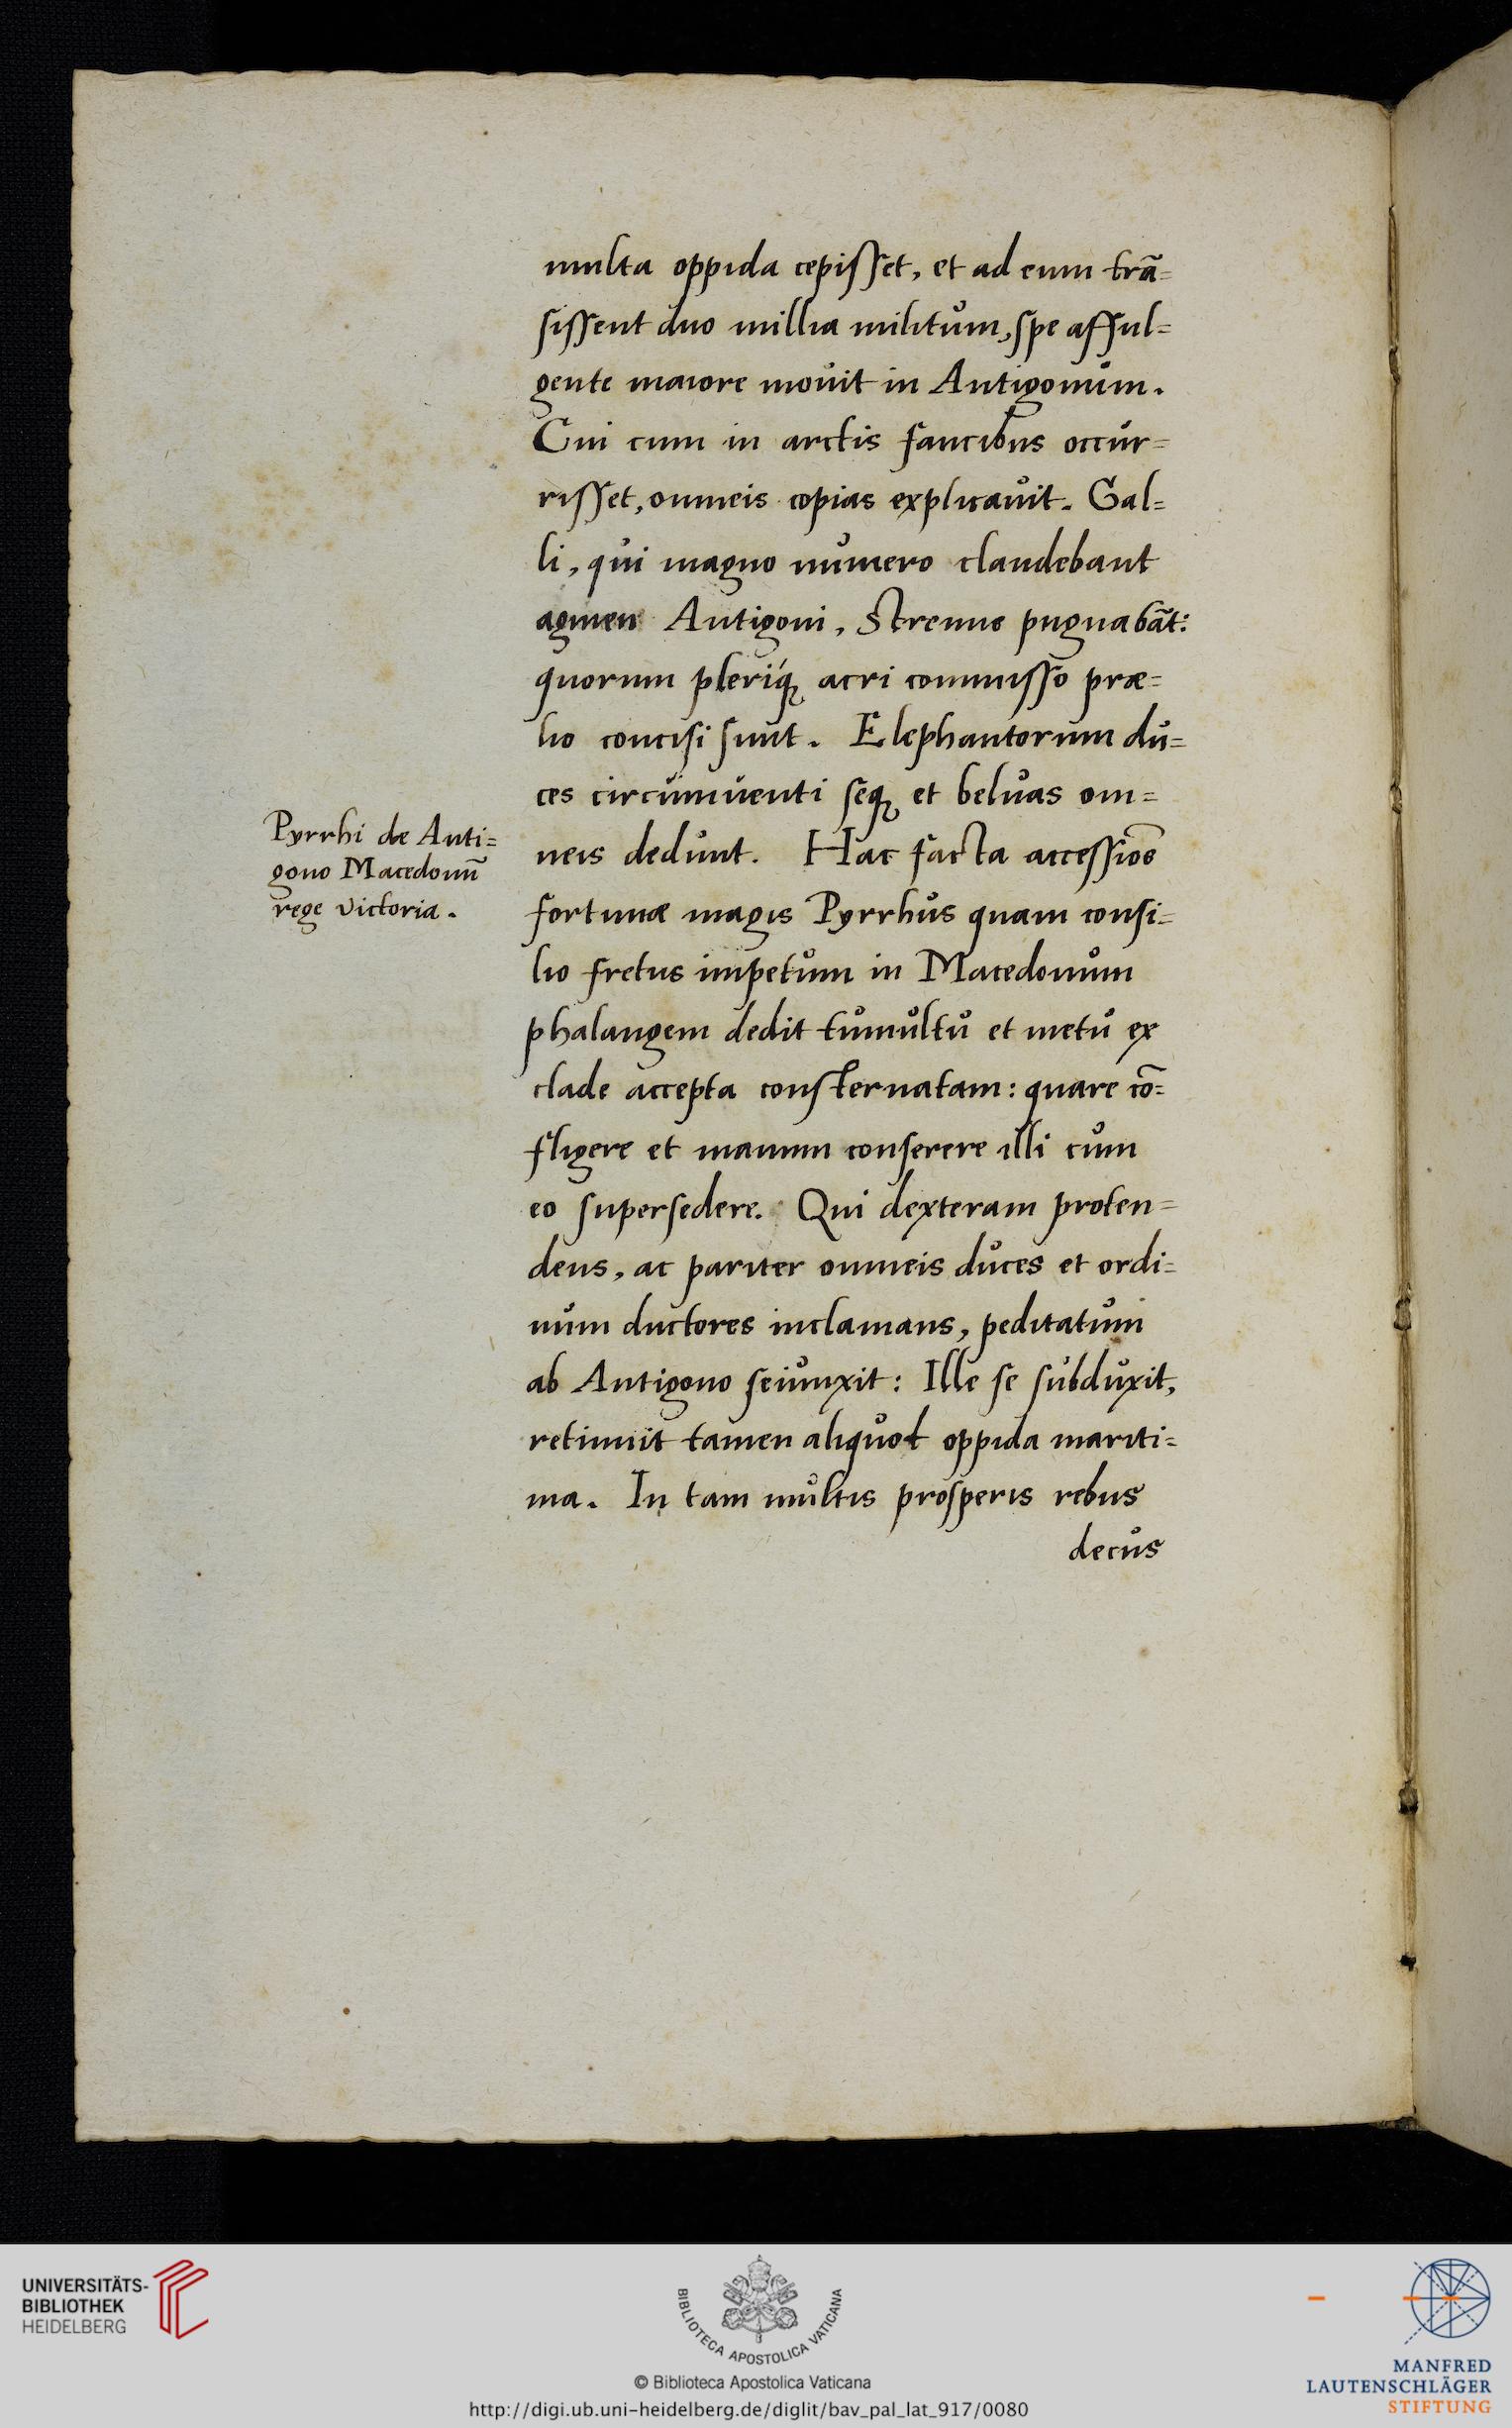 multa oppida cepisset, et ad eum trā=
sissent duo millia militum, spe afful=
gente maiore movit in Antigonum.
Cui cum in arctis faucibus occur=
risset, omneis copias explicavit. Gal=
li, qui magno numero claudebant
agmen Antigoni, strenue pugnabāt:
quorum pleriq; acri commisso præ=
lio concisi sunt. Elephantorum du=
ces circumventi seq; et beluas om=
neis dedunt. Hac facta accessiōe
fortunæ magis Pyrrhus quam consi=
lio fretus impetum in Macedonum
phalangem dedit tumultu et metu ex
clade accepta consternatam: quare cō=
fligere et manum conserere illi cum
eo supersedere. Qui dexteram proten=
dens, ac pariter omneis duces et ordi=
num ductores inclamans, peditatum
ab Antigono seiunxit: Ille se subduxit,
retinuit tamen aliquot oppida mariti=
ma. In tam multis prosperis rebus
decus
Pyrrhi de Anti=
gono Macedonū
rege victoria.
UNIVERSITÄTS-
BIBLIOTHEK
HEIDELBERG
BIBLIOTECA APOSTOLICA VATICANA
© Biblioteca Apostolica Vaticana
http://digi.ub.uni-heidelberg.de/diglit/bav_pal_lat_917/0080
MANFRED
LAUTENSCHLÄGER
STIFTUNG